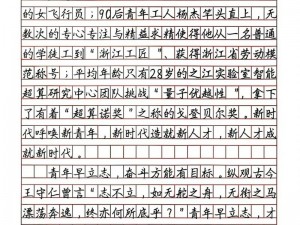 的女飞行员；90后青年工人杨杰竿头直上，无
数次的专心专注与精益求精使得他从一名普通
的学徒工到“浙江工匠”、获得浙江省劳动模
范称号；平均年龄只有28岁的之江实验室智能
超算研究中心团队挑战“量子优越性”，拿下
了有着“超算诺奖”之称的戈登贝尔奖。新时
代呼唤新青年，新时代造就新人才，新人才成
就新时代。
青年早立志，奋斗方能有目标。纵观古今
王守仁曾言“志不立，如无舵之舟，无衔之马
漂荡奔逸，终亦何所底乎？”青年早立志，才